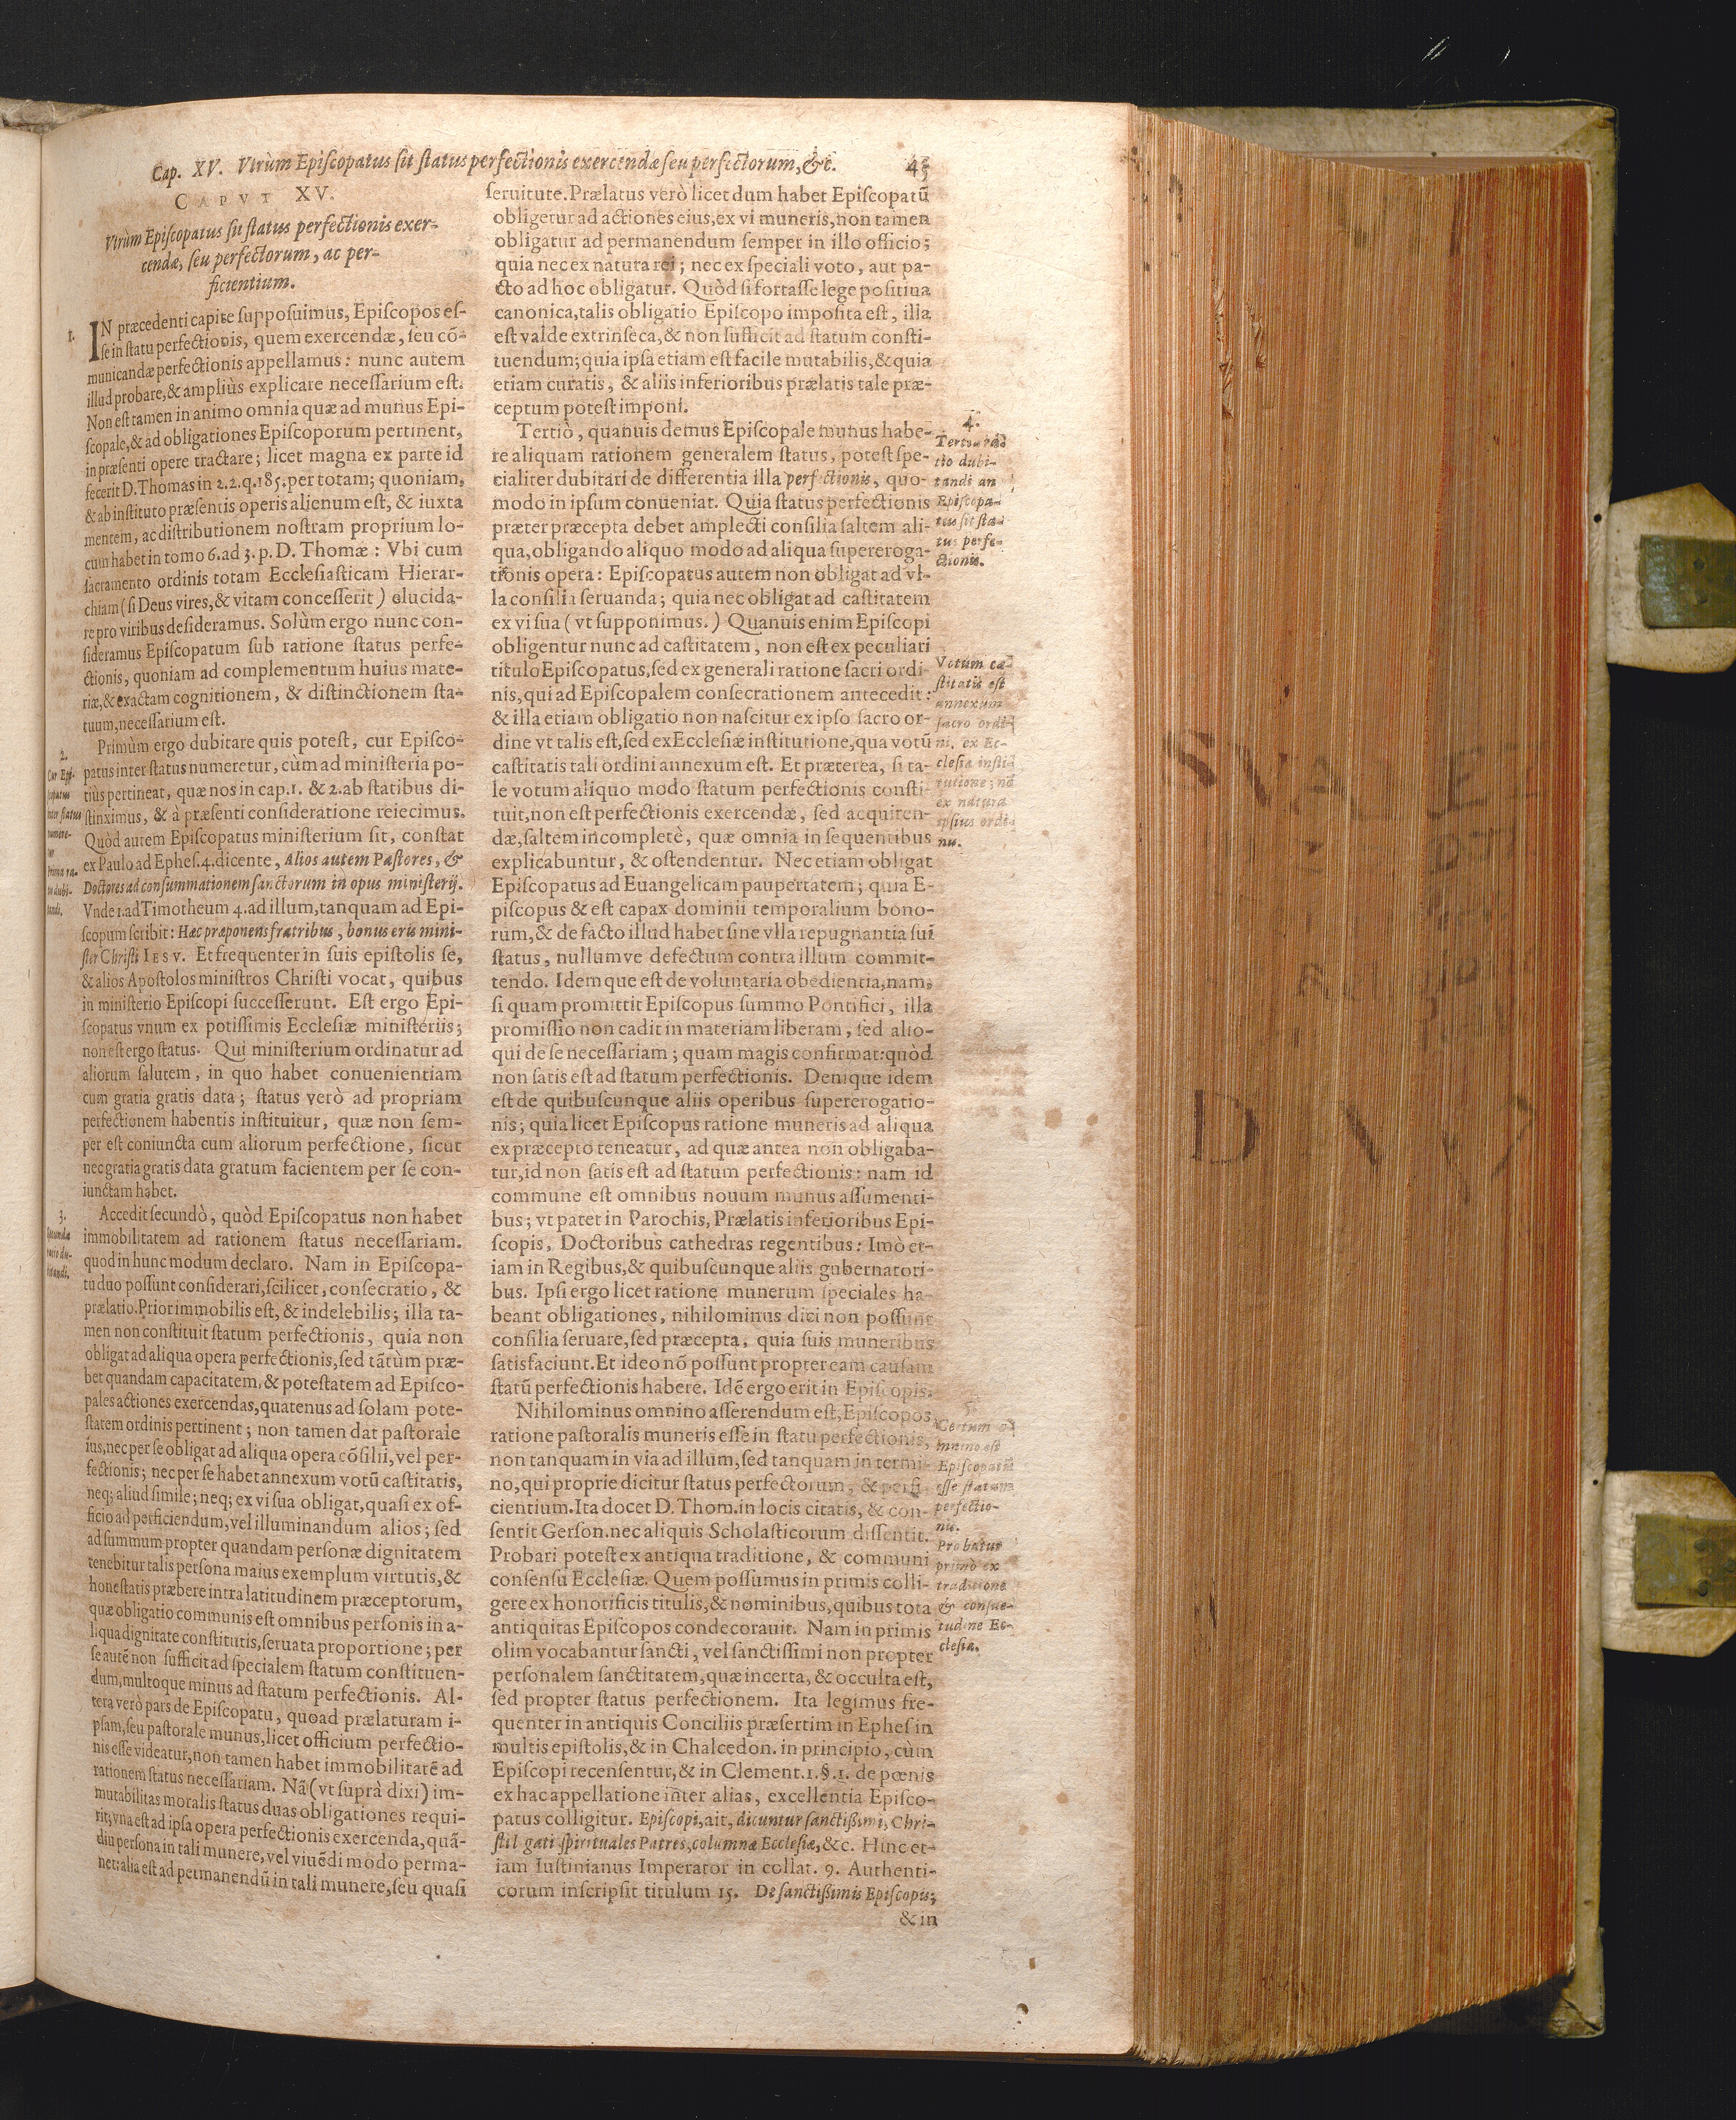 Cap. XV. Vtrùm Episcopatus sit status perfectionis exercendæ seu perfectorum, &c.
CAPVT XV.
Vtrùm Episcopatus sit status perfectionis exer-
cendæ, seu perfectorum, ac per-
ficientium.
1.
IN præcedenti capite supposuimus, Episcopos es-
se in statu perfectionis, quem exercendæ, seu cō-
municandæ perfectionis appellamus: nunc autem
illud probare, & ampliùs explicare necessarium est.
Non est tamen in animo omnia quæ ad munus Epi-
scopale, & ad obligationes Episcoporum pertinent,
in præsenti opere tractare; licet magna ex parte id
fecerit D. Thomas in 2.2.q.185. per totam; quoniam,
& ab instituto præsentis operis alienum est, & iuxta
mentem, ac distributionem nostram proprium lo-
cum habet in tomo 6. ad 3. p. D. Thomæ: Vbi cum
sacramento ordinis totam Ecclesiasticam Hierar-
chiam (si Deus vires, & vitam concesserit) elucida-
re pro viribus desideramus. Solùm ergo nunc con-
sideramus Episcopatum sub ratione status perfe-
ctionis, quoniam ad complementum huius mate-
riæ, & exactam cognitionem, & distinctionem sta-
tuum, necessarium est.
2.
Cur Epi-
scopatus
inter status
numere-
tur
Prima ra-
tio dubi-
tandi.
Primùm ergo dubitare quis potest, cur Episco-
patus inter status numeretur, cùm ad ministeria po-
tiùs pertineat, quæ nos in cap.1. & 2. ab statibus di-
stinximus, & à præsenti consideratione reiecimus.
Quòd autem Episcopatus ministerium sit, constat
ex Paulo ad Ephes.4. dicente, Alios autem Pastores, &
Doctores ad consummationem sanctorum in opus ministerij.
Vnde 1. ad Timotheum 4. ad illum, tanquam ad Epi-
scopum scribit: Hæc præponens fratribus, bonus eris mini-
ster Christi IESV. Et frequenter in suis epistolis se,
& alios Apostolos ministros Christi vocat, quibus
in ministerio Episcopi successerunt. Est ergo Epi-
scopatus vnum ex potissimis Ecclesiæ ministeriis;
non est ergo status. Qui ministerium ordinatur ad
aliorum salutem, in quo habet conuenientiam
cum gratia gratis data; status verò ad propriam
perfectionem habentis instituitur, quæ non sem-
per est coniuncta cum aliorum perfectione, sicut
nec gratia gratis data gratum facientem per se con-
iunctam habet.
3.
Secunda
ratio du-
bitandi.
Accedit secundò, quòd Episcopatus non habet
immobilitatem ad rationem status necessariam.
quod in hunc modum declaro. Nam in Episcopa-
tu duo possunt considerari, scilicet, consecratio, &
prælatio. Prior immobilis est, & indelebilis; illa ta-
men non constituit statum perfectionis, quia non
obligat ad aliqua opera perfectionis, sed tātùm præ-
bet quandam capacitatem, & potestatem ad Episco-
pales actiones exercendas, quatenus ad solam pote-
statem ordinis pertinent; non tamen dat pastorale
ius, nec per se obligat ad aliqua opera cōsilii, vel per-
fectionis; nec per se habet annexum votū castitatis,
neq; aliud simile; neq; ex vi sua obligat, quasi ex of-
ficio ad perficiendum, vel illuminandum alios; sed
ad summum propter quandam personæ dignitatem
tenebitur talis persona maius exemplum virtutis, &
honestatis præbere intra latitudinem præceptorum,
quæ obligatio communis est omnibus personis in a-
liqua dignitate constitutis, seruata proportione; per
se autē non sufficit ad specialem statum constituen-
dum, multoque minus ad statum perfectionis. Al-
tera verò pars de Episcopatu, quoad prælaturam i-
psam, seu pastorale munus, licet officium perfectio-
nis esse videatur, non tamen habet immobilitatē ad
rationem status necessariam. Nā (vt suprà dixi) im-
mutabilitas moralis status duas obligationes requi-
rit; vna est ad ipsa opera perfectionis exercenda, quā-
diu persona in tali munere, vel viuēdi modo perma-
net: alia est ad permanendū in tali munere, seu quasi
seruitute. Prælatus verò licet dum habet Episcopatū
obligetur ad actiones eius, ex vi muneris, non tamen
obligatur ad permanendum semper in illo officio;
quia nec ex natura rei; nec ex speciali voto, aut pa-
cto ad hoc obligatur. Quòd si fortasse lege positiua
canonica, talis obligatio Episcopo imposita est, illa
est valde extrinseca, & non sufficit ad statum consti-
tuendum; quia ipsa etiam est facile mutabilis, & quia
etiam curatis, & aliis inferioribus prælatis tale præ-
ceptum potest imponi.
4.
Tertia ra-
tio dubi-
tandi an
Episcopa-
tus sit sta-
tus perfe-
ctionis.
Tertiò, quanuis demus Episcopale munus habe-
re aliquam rationem generalem status, potest spe-
cialiter dubitari de differentia illa perfectionis, quo-
modo in ipsum conueniat. Quia status perfectionis
præter præcepta debet amplecti consilia saltem ali-
qua, obligando aliquo modo ad aliqua supereroga-
tionis opera: Episcopatus autem non obligat ad vl-
la consilia seruanda; quia nec obligat ad castitatem
ex vi sua (vt supponimus.) Quanuis enim Episcopi
obligentur nunc ad castitatem, non est ex peculiari
titulo Episcopatus, sed ex generali ratione sacri ordi-
nis, qui ad Episcopalem consecrationem antecedit:
& illa etiam obligatio non nascitur ex ipso sacro or-
dine vt talis est, sed ex Ecclesiæ institutione, qua votū
castitatis tali ordini annexum est. Et præterea, si ta-
le votum aliquo modo statum perfectionis consti-
tuit, non est perfectionis exercendæ, sed acquiren-
dæ, saltem incompletè, quæ omnia in sequentibus
explicabuntur, & ostendentur. Nec etiam obligat
Episcopatus ad Euangelicam paupertatem; quia E-
piscopus & est capax dominii temporalium bono-
rum, & de facto illud habet sine vlla repugnantia sui
status, nullumve defectum contra illum commit-
tendo. Idemque est de voluntaria obedientia, nam,
si quam promittit Episcopus summo Pontifici, illa
promissio non cadit in materiam liberam, sed alio-
qui de se necessariam; quam magis confirmat: quòd
non satis est ad statum perfectionis. Denique idem
est de quibuscunque aliis operibus supererogatio-
nis; quia licet Episcopus ratione muneris ad aliqua
ex præcepto teneatur, ad quæ antea non obligaba-
tur, id non satis est ad statum perfectionis: nam id
commune est omnibus nouum munus assumenti-
bus; vt patet in Parochis, Prælatis inferioribus Epi-
scopis, Doctoribus cathedras regentibus: Imò et-
iam in Regibus, & quibuscunque aliis gubernatori-
bus. Ipsi ergo licet ratione munerum speciales ha-
beant obligationes, nihilominus dici non possunt
consilia seruare, sed præcepta, quia suis muneribus
satisfaciunt. Et ideo nō possunt propter eam causam
statū perfectionis habere. Idē ergo erit in Episcopis.
Votum ca-
stitatis est
annexum
sacro ordi-
ni, ex Ec-
clesiæ insti-
tutione; nō
ex natura
ipsius ordi-
nis.
5.
Certum o-
mnino est
Episcopatū
esse statum
perfectio-
nis.
Probatur
primò ex
traditione
& consue-
tudine Ec-
clesiæ.
Nihilominus omnino asserendum est, Episcopos
ratione pastoralis muneris esse in statu perfectionis,
non tanquam in via ad illum, sed tanquam in termi-
no, qui proprie dicitur status perfectorum, & perfi-
cientium. Ita docet D. Thom. in locis citatis, & con-
sentit Gerson. nec aliquis Scholasticorum dissentit.
Probari potest ex antiqua traditione, & communi
consensu Ecclesiæ. Quem possumus in primis colli-
gere ex honorificis titulis, & nominibus, quibus tota
antiquitas Episcopos condecorauit. Nam in primis
olim vocabantur sancti, vel sanctissimi non propter
personalem sanctitatem, quæ incerta, & occulta est,
sed propter status perfectionem. Ita legimus fre-
quenter in antiquis Conciliis præsertim in Ephes in
multis epistolis, & in Chalcedon. in principio, cùm
Episcopi recensentur, & in Clement.1.§.1. de pœnis
ex hac appellatione inter alias, excellentia Episco-
patus colligitur. Episcopi, ait, dicuntur sanctissimi, Chri-
sti l gati spirituales Patres, columnæ Ecclesiæ, &c. Hinc et-
iam Iustinianus Imperator in collat. 9. Authenti-
corum inscripsit titulum 15. De sanctissimis Episcopis;
& in